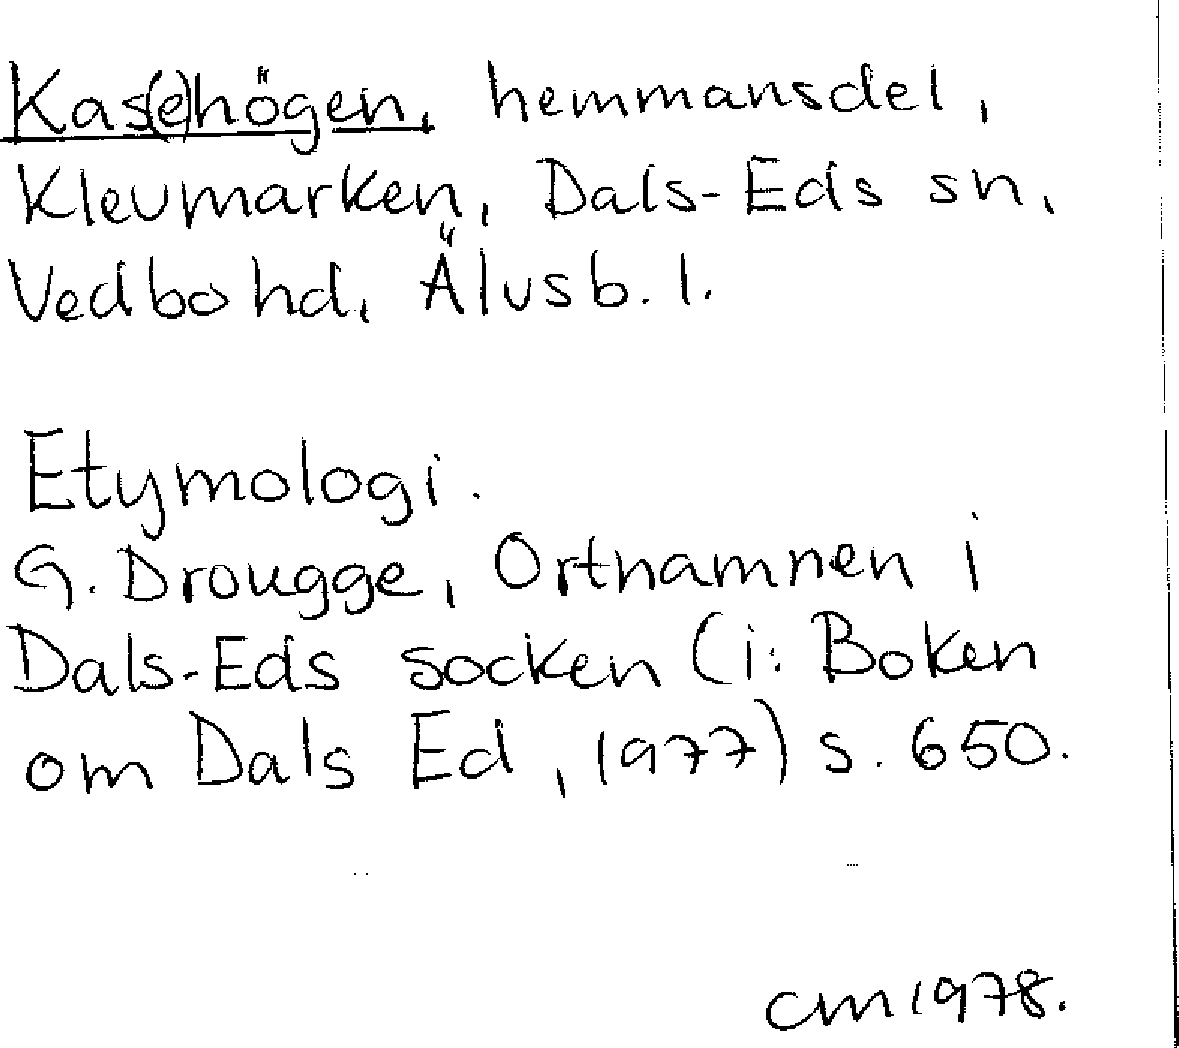 Kas(e)högen, hemmansdel,
Klevmarken, Dals-Eds sn,
Vedbo hd, Älvsb. l.
Etymologi.
G. Drougge, Ortnamnen i
Dals-Eds socken (i: Boken
om Dals Ed, 1977) s. 650.
CM 1978.